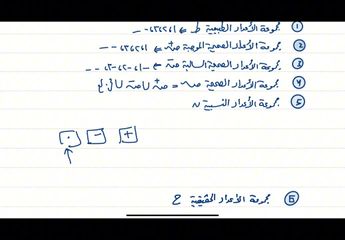 ① مجموعة الأعداد الطبيعية ط ← ١،٢،٣،٤ ---
② مجموعة الأعداد الصحيحة الموجبة صـ+ ← ١،٢،٣،٤ ---
③ مجموعة الأعداد الصحيحة السالبة صـ- ← -١،-٢،-٣ ---
④ مجموعة الأعداد الصحيحة صـ = صـ+ ∪ صـ- ∪ {٠}
⑤ مجموعة الأعداد النسبية ن
+ - ٠
⑤ مجموعة الأعداد الحقيقية ح